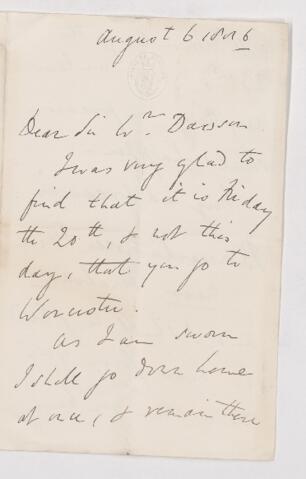 August 6 1886
Dear Sir Wm Dawson
I was very glad to
find that it is Friday
the 20th, & not this
day, that you go to
Worcester.
As I am sworn
I shall go down home
at once, & remain there